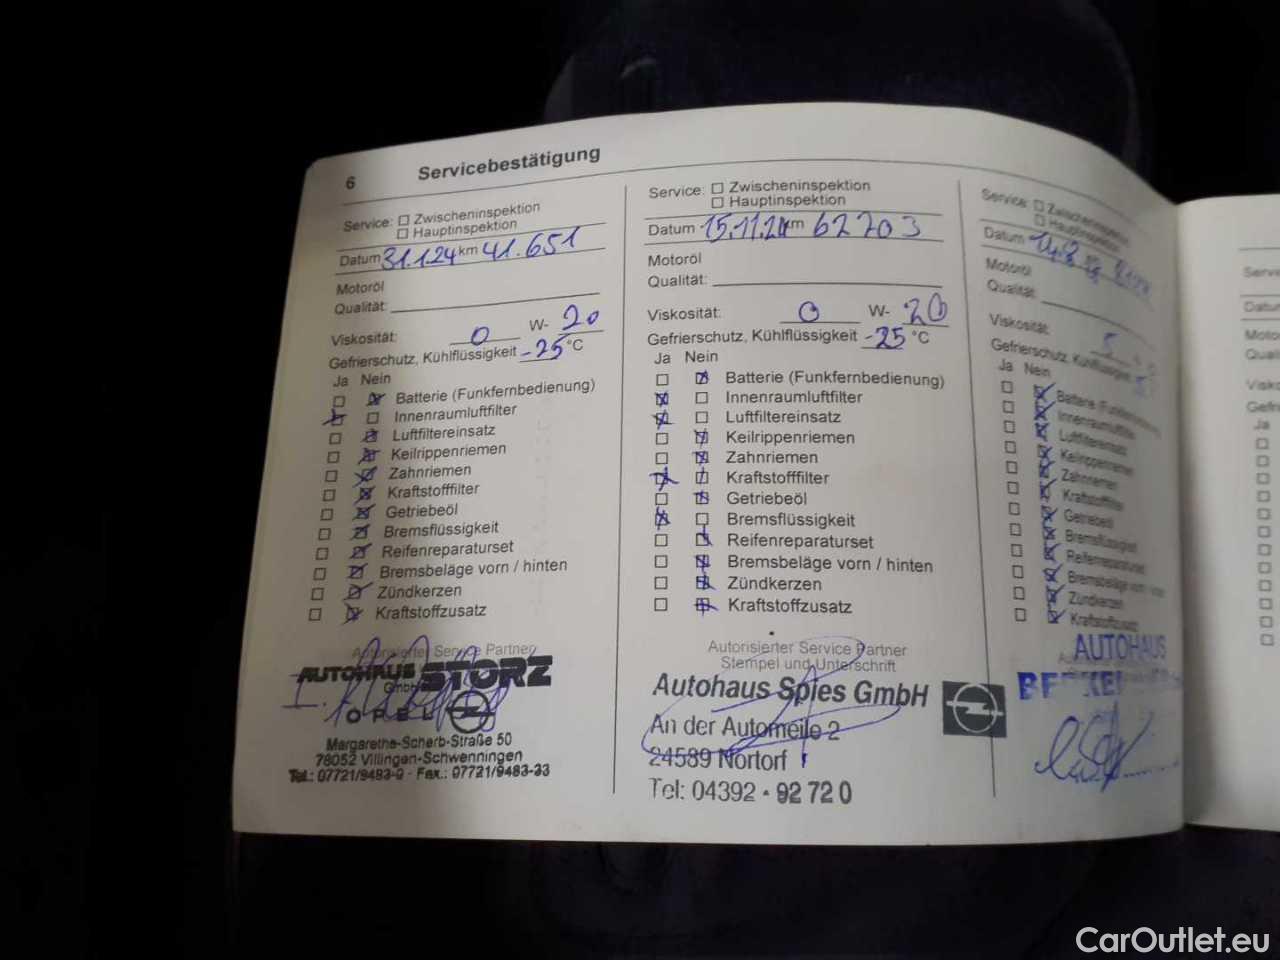 6 Servicebestätigung
Service: Zwischeninspektion
Hauptinspektion
Datum 31.1.24 km 41.651
Motoröl
Qualität:
Viskosität: 0 W- 20
Gefrierschutz, Kühlflüssigkeit -25 °C
Ja Nein
Batterie (Funkfernbedienung)
Innenraumluftfilter
Luftfiltereinsatz
Keilrippenriemen
Zahnriemen
Kraftstofffilter
Getriebeöl
Bremsflüssigkeit
Reifenreparaturset
Bremsbeläge vorn / hinten
Zündkerzen
Kraftstoffzusatz
Autorisierter Service Partner
AUTOHAUS STORZ
GmbH
OPEL
Margarethe-Scherb-Straße 50
78052 Villingen-Schwenningen
Tel.: 07721/9483-0 · Fax.: 07721/9483-33
Service: Zwischeninspektion
Hauptinspektion
Datum 15.11.24 km 62703
Motoröl
Qualität:
Viskosität: 0 W- 20
Gefrierschutz, Kühlflüssigkeit -25 °C
Ja Nein
Batterie (Funkfernbedienung)
Innenraumluftfilter
Luftfiltereinsatz
Keilrippenriemen
Zahnriemen
Kraftstofffilter
Getriebeöl
Bremsflüssigkeit
Reifenreparaturset
Bremsbeläge vorn / hinten
Zündkerzen
Kraftstoffzusatz
Autorisierter Service Partner
Stempel und Unterschrift
Autohaus Spies GmbH
An der Automeile 2
24589 Nortorf
Tel: 04392 · 92 72 0
Service: Zwischeninspektion
Hauptinspektion
Datum
Motoröl
Qualität:
Viskosität: 5
Gefrierschutz, Kühlflüssigkeit
Ja Nein
Batterie
Innenraumluftfilter
Luftfiltereinsatz
Keilrippenriemen
Zahnriemen
Kraftstofffilter
Getriebeöl
Bremsflüssigkeit
Reifenreparaturset
Bremsbeläge vorn
Zündkerzen
Kraftstoffzusatz
AUTOHAUS
Ja
CarOutlet.eu